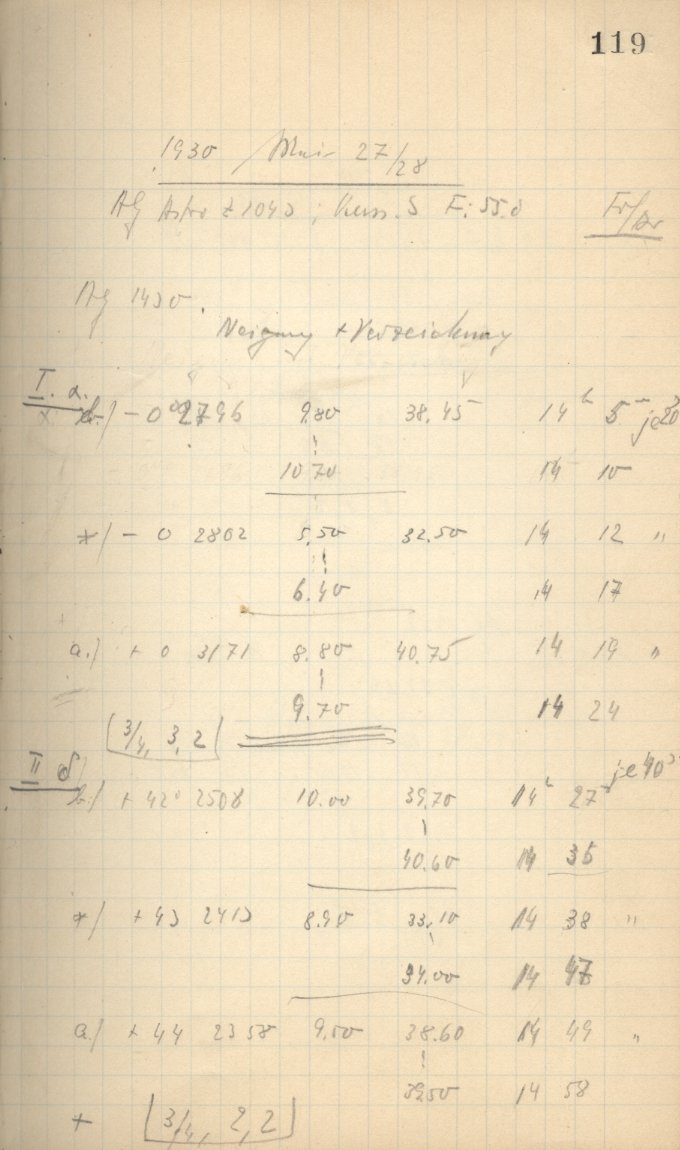 119
1930 Mai 27/28
AG Astro 1043; Kass. 5 F: 55.0 Fr/Ar
AG 1430.
Neigung + Verzeichnung
I. α.
b.) - 0° 2796 9.80 38.45 14h 5m je 20s
10.70 14 10
*) - 0 2802 5.50 32.50 14 12 "
6.40 14 17
a.) + 0 3171 8.80 40.75 14 19 "
9.70 14 24
[3/4, 3, 2]
II δ
b.) + 42° 2508 10.00 39.70 14h 27 je 40s
40.60 14 36
*) + 43 2413 8.90 33.10 14 38 "
34.00 14 47
a.) + 44 2358 9.50 38.60 14 49 "
39.50 14 58
+ [3/4, 2, 2]